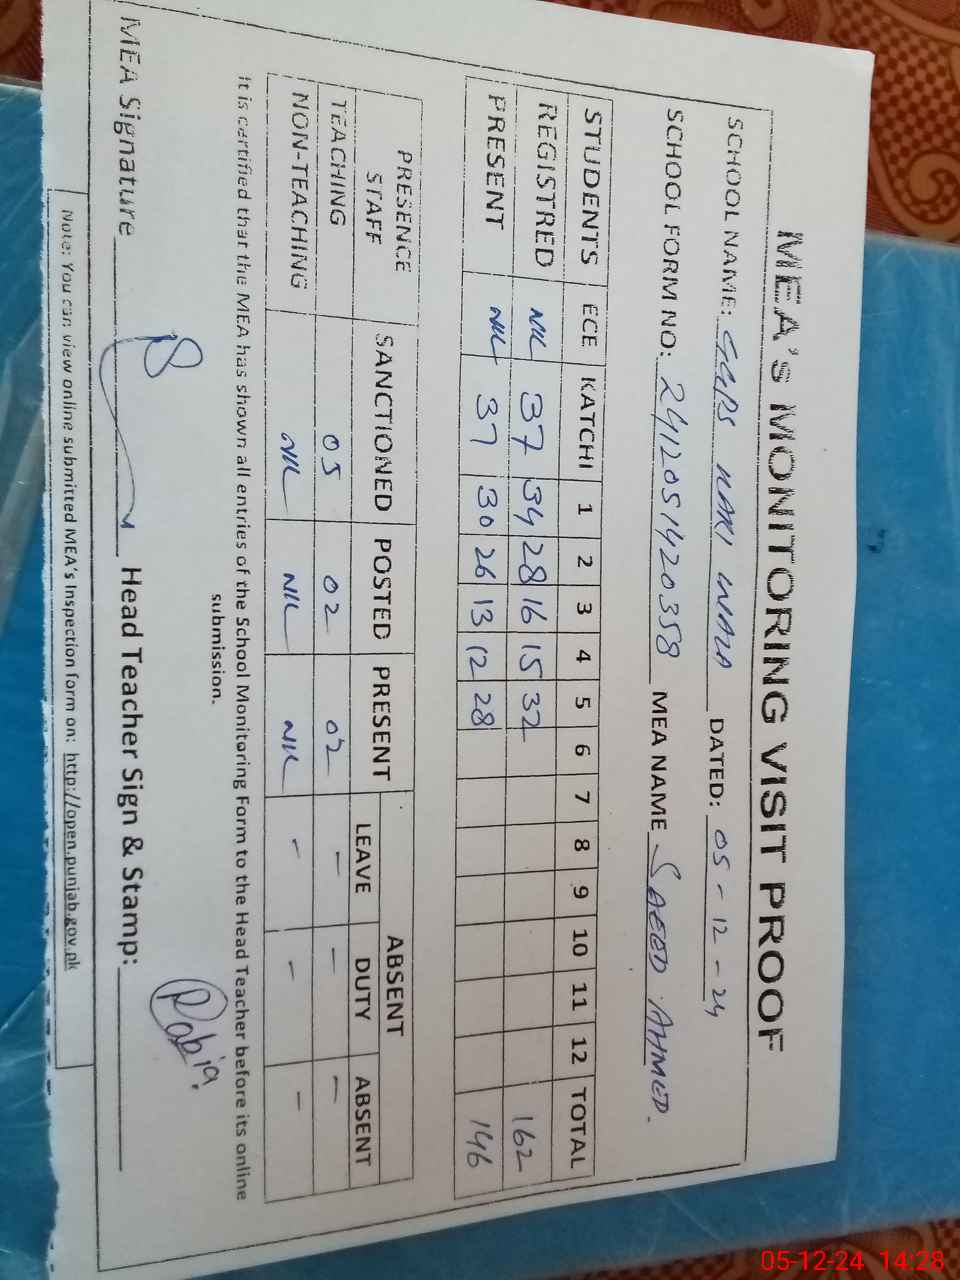 MEA's MONITORING VISIT PROOF
SCHOOL NAME: GGPS NARI WALA DATED: 05-12-24
SCHOOL FORM NO: 2412051420358 MEA NAME SAEED AHMED.
STUDENTS ECE KATCHI 1 2 3 4 5 6 7 8 9 10 11 12 TOTAL
REGISTRED NIL 37 34 28 16 15 32 162
PRESENT NIL 37 30 26 13 12 28 146
PRESENCE STAFF SANCTIONED POSTED PRESENT ABSENT
LEAVE DUTY ABSENT
TEACHING 05 02 02 - - -
NON-TEACHING NIL NIL NIL - - -
It is certified that the MEA has shown all entries of the School Monitoring Form to the Head Teacher before its online
submission.
Rabia
MEA Signature Head Teacher Sign & Stamp:
Note: You can view online submitted MEA's Inspection form on: http://open.punjab.gov.pk
05-12-24 14:28